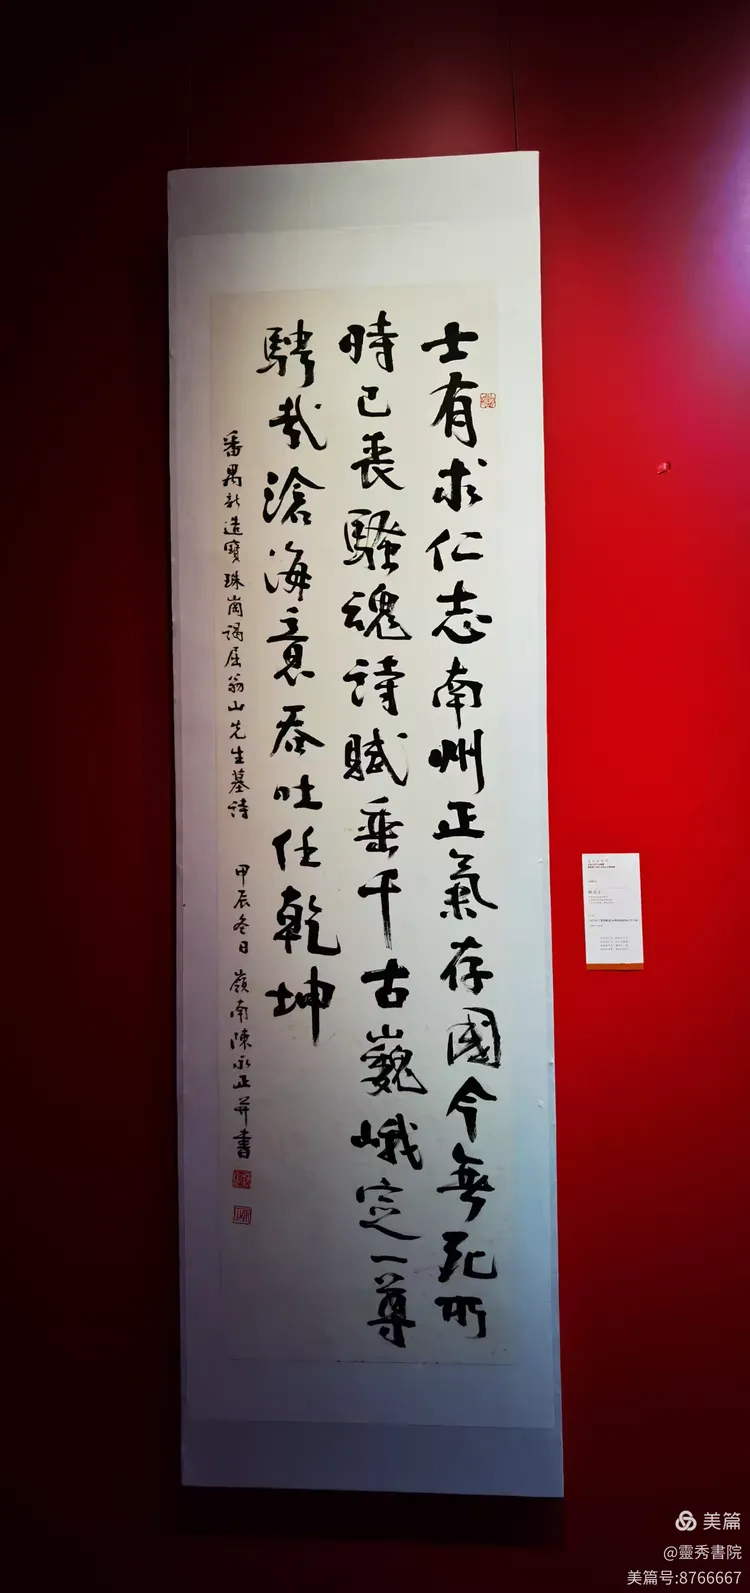 士有求仁志南州正氣存國今無死所
時已喪騷魂詩賦垂千古巍峨定一尊
騁哉滄海意吞吐任乾坤
番禺新造寶珠崗謁屈翁山先生墓詩 甲辰冬日 嶺南陳永正并書
美篇
@靈秀書院
美篇号:8766667